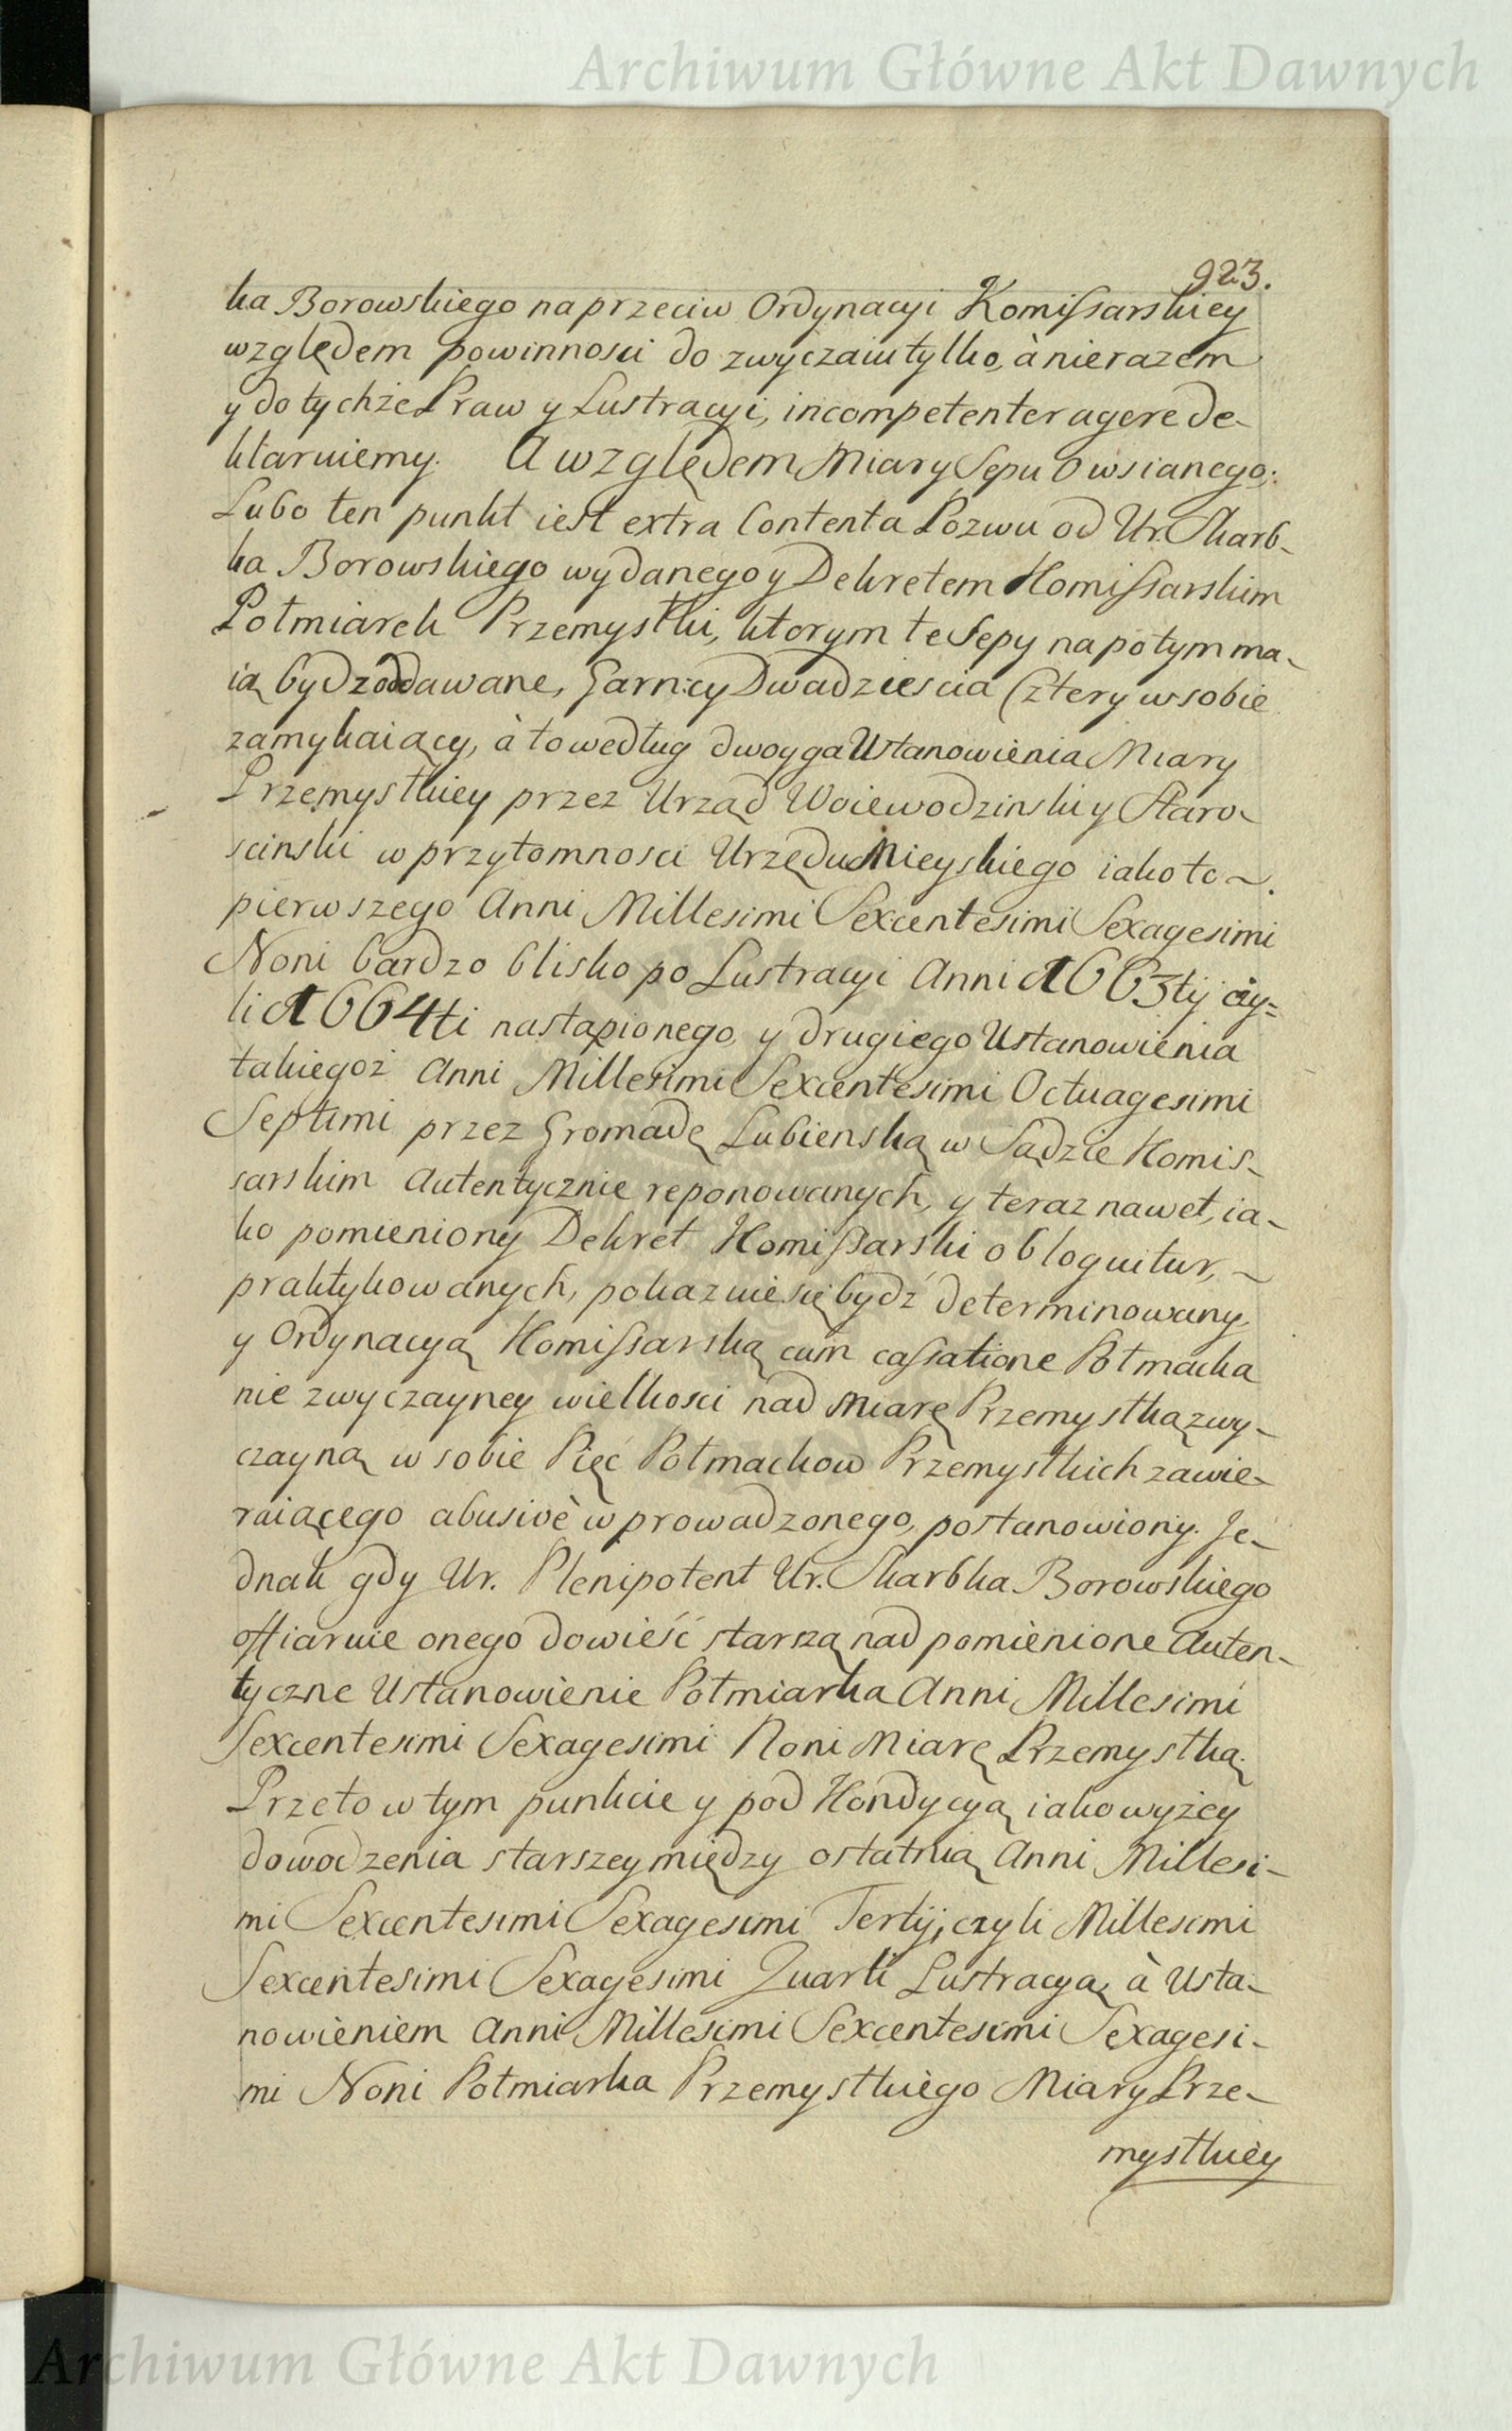 Archiwum Główne Akt Dawnych
923.
ka Borowskiego naprzeciw Ordynacyi Komissarskiey
względem powinnosci do zwyczaiu tylko, à nie razem
y do tychże Praw y Lustracyi, incompetenter agere de-
klaruiemy. A względem Miary Sepu Owsianego;
Lubo ten punkt iest extra Contenta Pozwu od Ur. Skarb-
ka Borowskiego wydanego y Dekretem Komissarskim
Połmiarek Przemyski, ktorym te Sepy napotym ma-
ią bydz oddawane, Garncy Dwadziescia Cztery w sobie
zamykaiący, à to według dwoyga Ustanowienia Miary
Przemyskiey przez Urząd Woiewodzinski y Staro-
scinski w przytomnosci Urzędu Mieyskiego iako to
pierwszego Anni Millesimi Sexcentesimi Sexagesimi
Noni bardzo blisko po Lustracyi Anni 1663tij czy-
li 1664ti nastąpionego, y drugiego Ustanowienia
takiegoż Anni Millesimi Sexcentesimi Octuagesimi
Septimi przez Gromadę Lubienską w Sądzie Komis-
sarskim Autentycznie reponowanych, y teraz nawet, ia-
ko pomieniony Dekret Komissarski obloquitur,
praktykowanych, pokazuie się bydź determinowany,
y Ordynacyą Komissarską cum cassatione Połmacka
nie zwyczayney wielkosci nad Miarę Przemyską zwy-
czayną w sobie Pięć Połmackow Przemyskich zawie-
raiącego abusivè wprowadzonego, postanowiony. Je-
dnak gdy Ur. Plenipotent Ur. Skarbka Borowskiego
offiaruie onego dowieść starszą nad pomienione Auten-
tyczne Ustanowienie Połmiarka Anni Millesimi
Sexcentesimi Sexagesimi Noni Miarę Przemyską.
Przeto w tym punkcie y pod Kondycyą iako wyżey
dowodzenia starszey między ostatnią Anni Millesi-
mi Sexcentesimi Sexagesimi Tertij, czyli Millesimi
Sexcentesimi Sexagesimi Quarti Lustracyą, à Usta-
nowieniem Anni Millesimi Sexcentesimi Sexagesi-
mi Noni Połmiarka Przemyskiego Miary Prze-
myskiey
Archiwum Główne Akt Dawnych